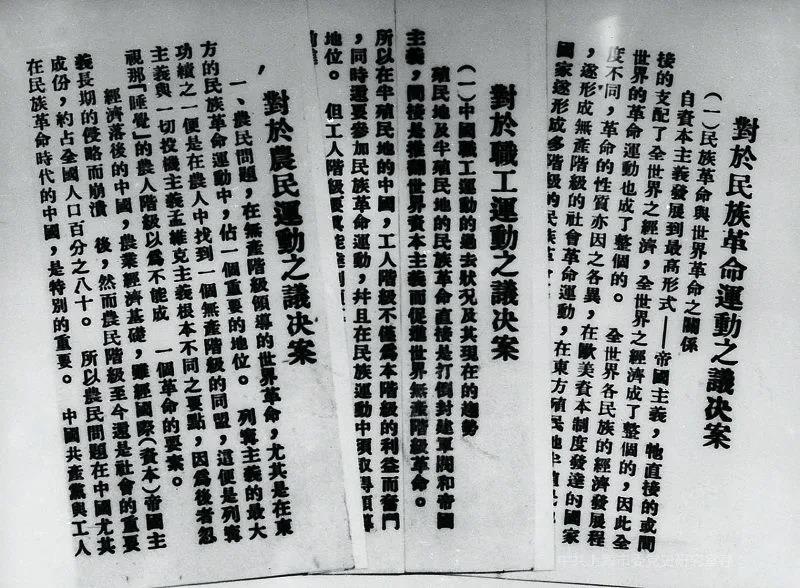 對於民族革命運動之議决案
(一)民族革命與世界革命之關係
自資本主義發展到最高形式——帝國主義，牠直接的或間
接的支配了全世界之經濟，全世界之經濟成了整個的，因此全
世界的革命運動也成了整個的。 全世界各民族的經濟發展程
度不同，革命的性質亦因之各異，在歐美資本制度發達的國家
，遂形成無產階級的社會革命運動，在東方殖民地半殖民地
國家遂形成多階級的民族革
對於職工運動之議决案
(一)中國職工運動的過去狀况及其現在的趨勢
殖民地及半殖民地的民族革命直接是打倒封建軍閥和帝國
主義，間接是推翻世界資本主義而促進世界無產階級革命。
所以在半殖民地的中國，工人階級不僅爲本階級的利益而奮鬥
，同時還要參加民族革命運動，幷且在民族運動中須取得領導
地位。 但工人階級要眞能達到
對於農民運動之議决案
一、農民問題，在無產階級領導的世界革命，尤其是在東
方的民族革命運動中，佔一個重要的地位。 列寧主義的最大
功績之一便是在農人中找到一個無產階級的同盟，這便是列寧
主義與一切投機主義孟維克主義根本不同之要點，因爲後者忽
視那『睡覺』的農人階級以爲不能成 一個革命的要素。
經濟落後的中國，農業經濟基礎，雖經國際(資本)帝國主
義長期的侵略而崩潰 後，然而農民階級至今還是社會的重要
成份，約占全國人口百分之八十。 所以農民問題在中國尤其
在民族革命時代的中國，是特別的重要。 中國共產黨與工人